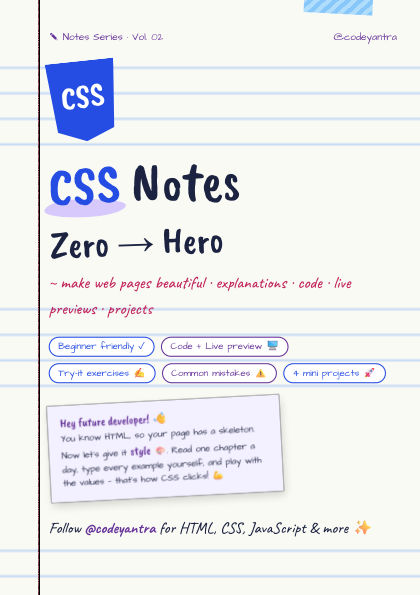 ✎ Notes Series · Vol. 02
@codeyantra
CSS
CSS Notes
Zero → Hero
~ make web pages beautiful · explanations · code · live
previews · projects
Beginner friendly ✓
Code + Live preview 🖥️
Try-it exercises ✍️
Common mistakes ⚠️
4 mini projects 🚀
Hey future developer! 👋
You know HTML, so your page has a skeleton.
Now let's give it style 🎨. Read one chapter a
day, type every example yourself, and play with
the values - that's how CSS clicks! 💪
Follow @codeyantra for HTML, CSS, JavaScript & more ✨